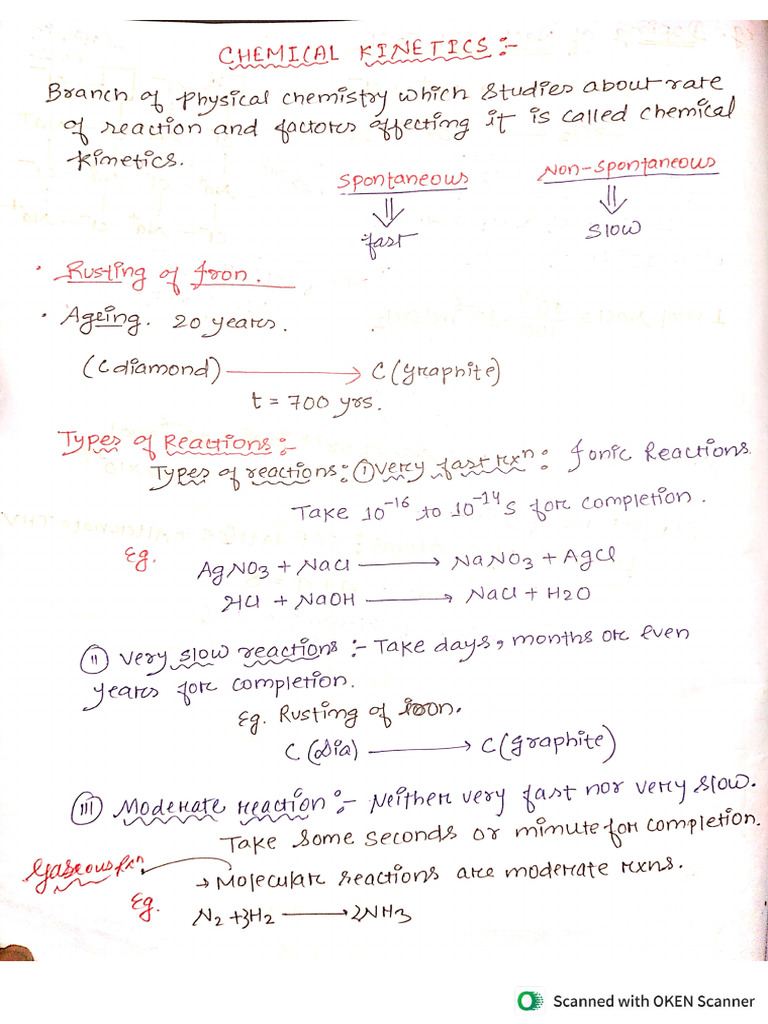 CHEMICAL KINETICS:-
Branch of physical chemistry which studies about rate
of reaction and factors affecting it is called chemical
kinetics.
Spontaneous Non-spontaneous
⇓ ⇓
fast slow
· Rusting of Iron.
· Ageing. 20 years.
(C diamond) ⟶ C (graphite)
t = 700 yrs.
Types of Reactions:-
Types of reactions: (i) Very fast rxn: Ionic Reactions
Take 10⁻¹⁶ to 10⁻¹⁴ s for completion.
Eg. AgNO3 + NaCl ⟶ NaNO3 + AgCl
HCl + NaOH ⟶ NaCl + H2O
(ii) Very slow reactions:- Take days, months or even
years for completion.
Eg. Rusting of iron.
C (Dia) ⟶ C (graphite)
(iii) Moderate reaction:- Neither very fast nor very slow.
Take some seconds or minute for completion.
Gaseous rxn
→ Molecular reactions are moderate rxns.
Eg. N2 + 3H2 ⟶ 2NH3
Scanned with OKEN Scanner